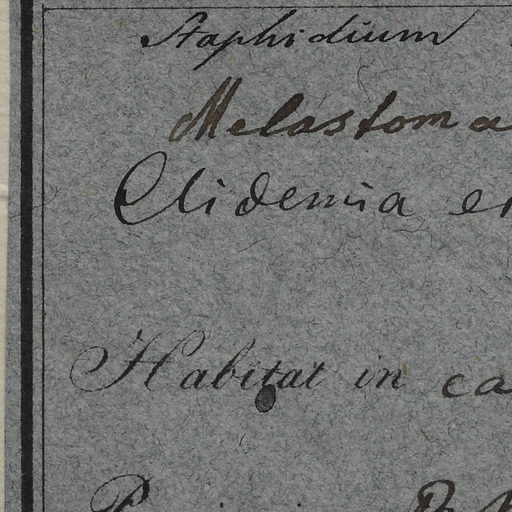 Staphidium
Melastoma
Clidemia
Habitat in